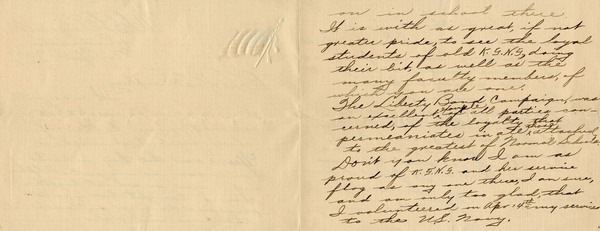 on in school there
It is with as great, if not
greater pride, to see the loyal
students of old K.S.N.S, doing
their bit, as well as the
many faculty members, of
which you are one.
The Liberty Bond Campaign, was
an excellent example of all parties con-
cerned, of the loyalty that
permeaniates in all those attached
to the greatest of Normal Schools
Don't you know I am as
proud of K.S.N.S. and her service
flag as any one there, I am sure,
and am only too glad, that
I volunteered on Apr. 4th my services
to the U.S. Navy.